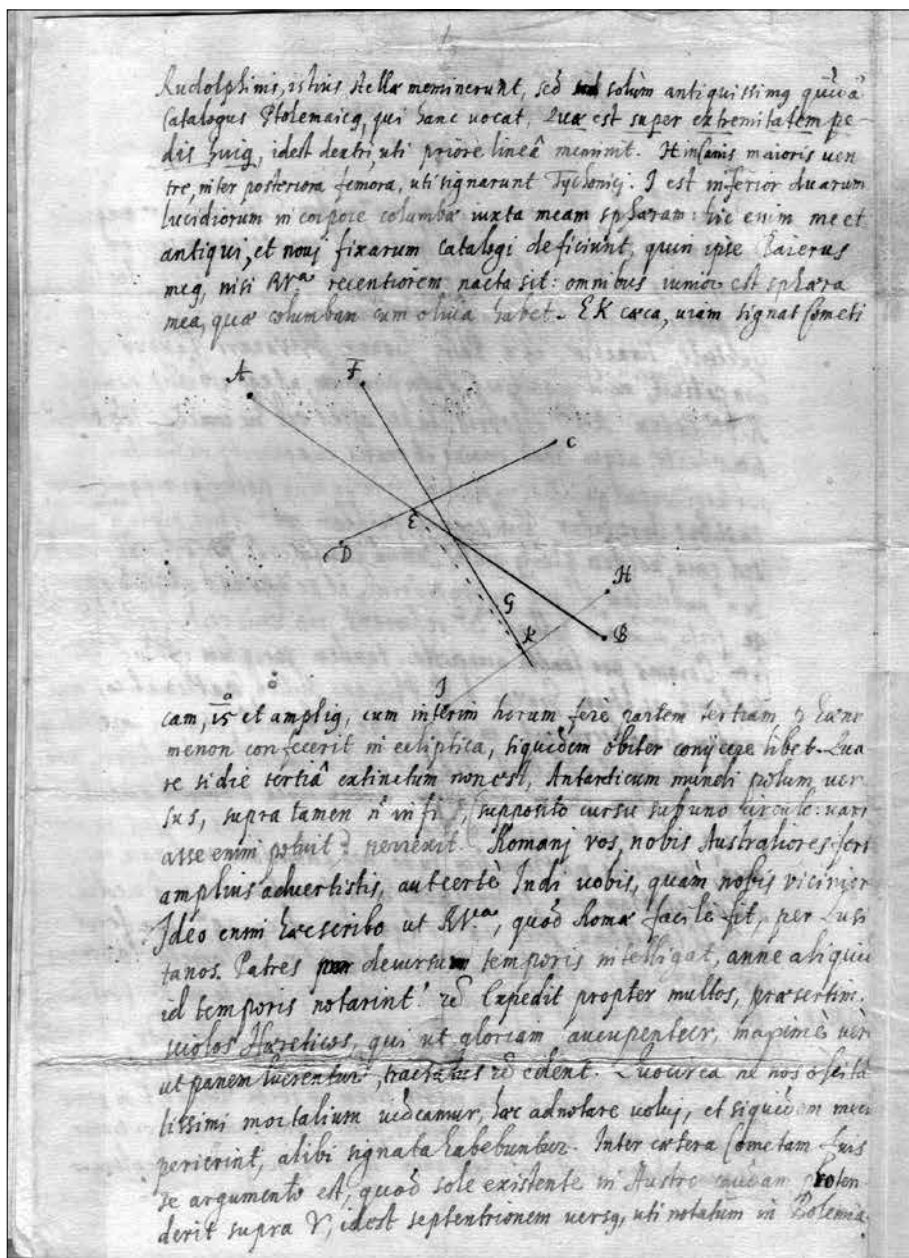 Rudolphinis, istius stellæ meminerunt, sed solùm antiquissimq
Catalogus Ptolemaicq, qui hanc vocat, Quæ est super extremitatem pe-
dis huiq, idest dextri, uti priore lineâ meminit. H in canis maioris uen
tre, inter posteriora femora, uti signarunt Tychonicj. I est inferior duarum
lucidiorum in corpore columbæ iuxta meam sphæram: hic enim me et
antiqui, et nouj fixarum catalogi deficiunt, quin ipse Baierus
meq, nisi RVᵃ recentiorem nacta sit: omnibus iunior est sphæra
mea, quæ columbam cum oliua habet. EK cæca, uiam signat Cometi
A
F
C
E
D
H
G
B
K
I
cam, 15 et ampliq, cum interim horum ferè partem tertiam
menon confecerit in ecliptica, siquidem obiter conijcere libet. Qua
re si die tertiâ extinctum non est, Antarcticum mundi polum uer
sus, supra tamen supposito cursu sub uno circulo: uari
asse enim potuit perrexit. Romanj vos, nobis Australiores
amplius advertistis, aut certè Indi uobis, quàm nobis vicinior
Ideo enim hæc scribo ut RVᵃ, quod Romæ facilè fit, per Lusi
tanos Patres de uersum temporis intelligat, anne aliquid
id temporis notarint Expedit propter multos, præsertim
sciolos Hæreticos, qui ut gloriam aucupentur, maximè
ut panem lucrentur, tractatus edent. Quocirca ne nos oscita
tissimi mortalium uideamur, hæc adnotare voluj, et siquidem
perierint, alibi signata habebuntur. Inter cætera Cometam fuis
se argumento est, quod sole existente in Austro proten
derit supra ♈, idest septentrionem versq, uti notatum in Bohemia